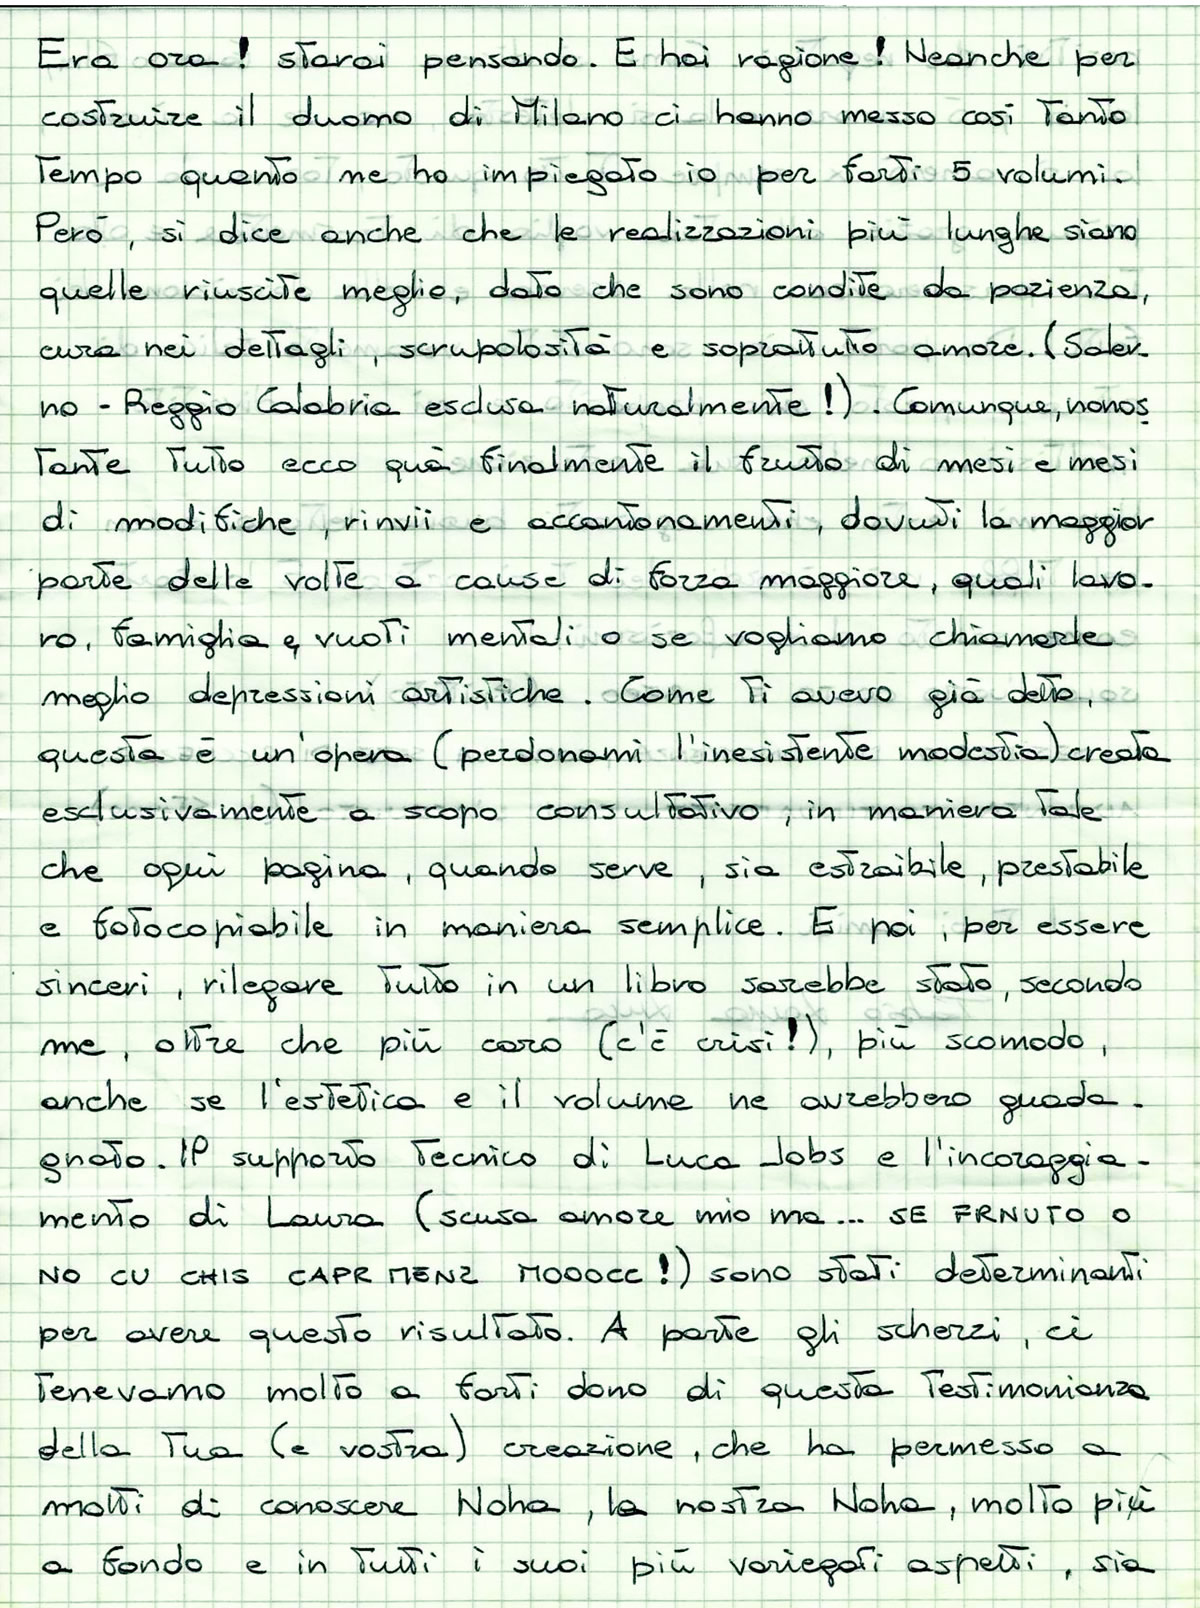 Era ora! starai pensando. E hai ragione! Neanche per
costruire il duomo di Milano ci hanno messo così tanto
tempo quanto ne ho impiegato io per farti 5 volumi.
Però, si dice anche che le realizzazioni più lunghe siano
quelle riuscite meglio, dato che sono condite da pazienza,
cura nei dettagli, scrupolosità e soprattutto amore. (Saler-
no - Reggio Calabria esclusa naturalmente!). Comunque, nonos
tante tutto ecco quà finalmente il frutto di mesi e mesi
di modifiche, rinvii e accantonamenti, dovuti la maggior
parte delle volte a cause di forza maggiore, quali lavo-
ro, famiglia e vuoti mentali o se vogliamo chiamarle
meglio depressioni artistiche. Come ti avevo già detto,
questa è un'opera (perdonami l'inesistente modestia) creata
esclusivamente a scopo consultativo, in maniera tale
che ogni pagina, quando serve, sia estraibile, prestabile
e fotocopiabile in maniera semplice. E poi, per essere
sinceri, rilegare tutto in un libro sarebbe stato, secondo
me, oltre che più caro (c'è crisi!), più scomodo,
anche se l'estetica e il volume ne avrebbero guada-
gnato. Il supporto tecnico di Luca Jobs e l'incoraggia-
mento di Laura (scusa amore mio ma... SE FRNUTO O
NO CU CHIS CAPR MENZ MOOOCC!) sono stati determinanti
per avere questo risultato. A parte gli scherzi, ci
tenevamo molto a farti dono di questa testimonianza
della tua (e vostra) creazione, che ha permesso a
molti di conoscere Noha, la nostra Noha, molto più
a fondo e in tutti i suoi più variegati aspetti, sia